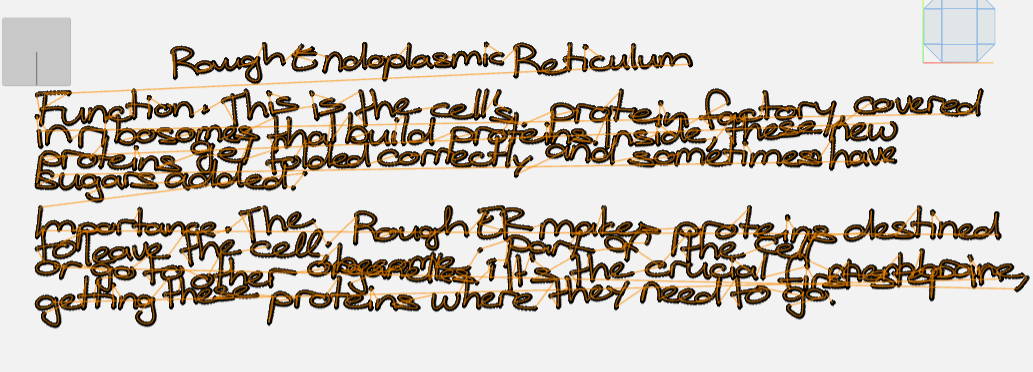 Rough Endoplasmic Reticulum
Function. This is the cell's. protein factory covered
in ribosomes that build proteins. Inside, these new
proteins get folded correctly and sometimes have
sugars added.
Importance. The Rough ER makes proteins destined
to leave the cell. part of the cell
or go to other it's the crucial first
getting these proteins where they need to go.